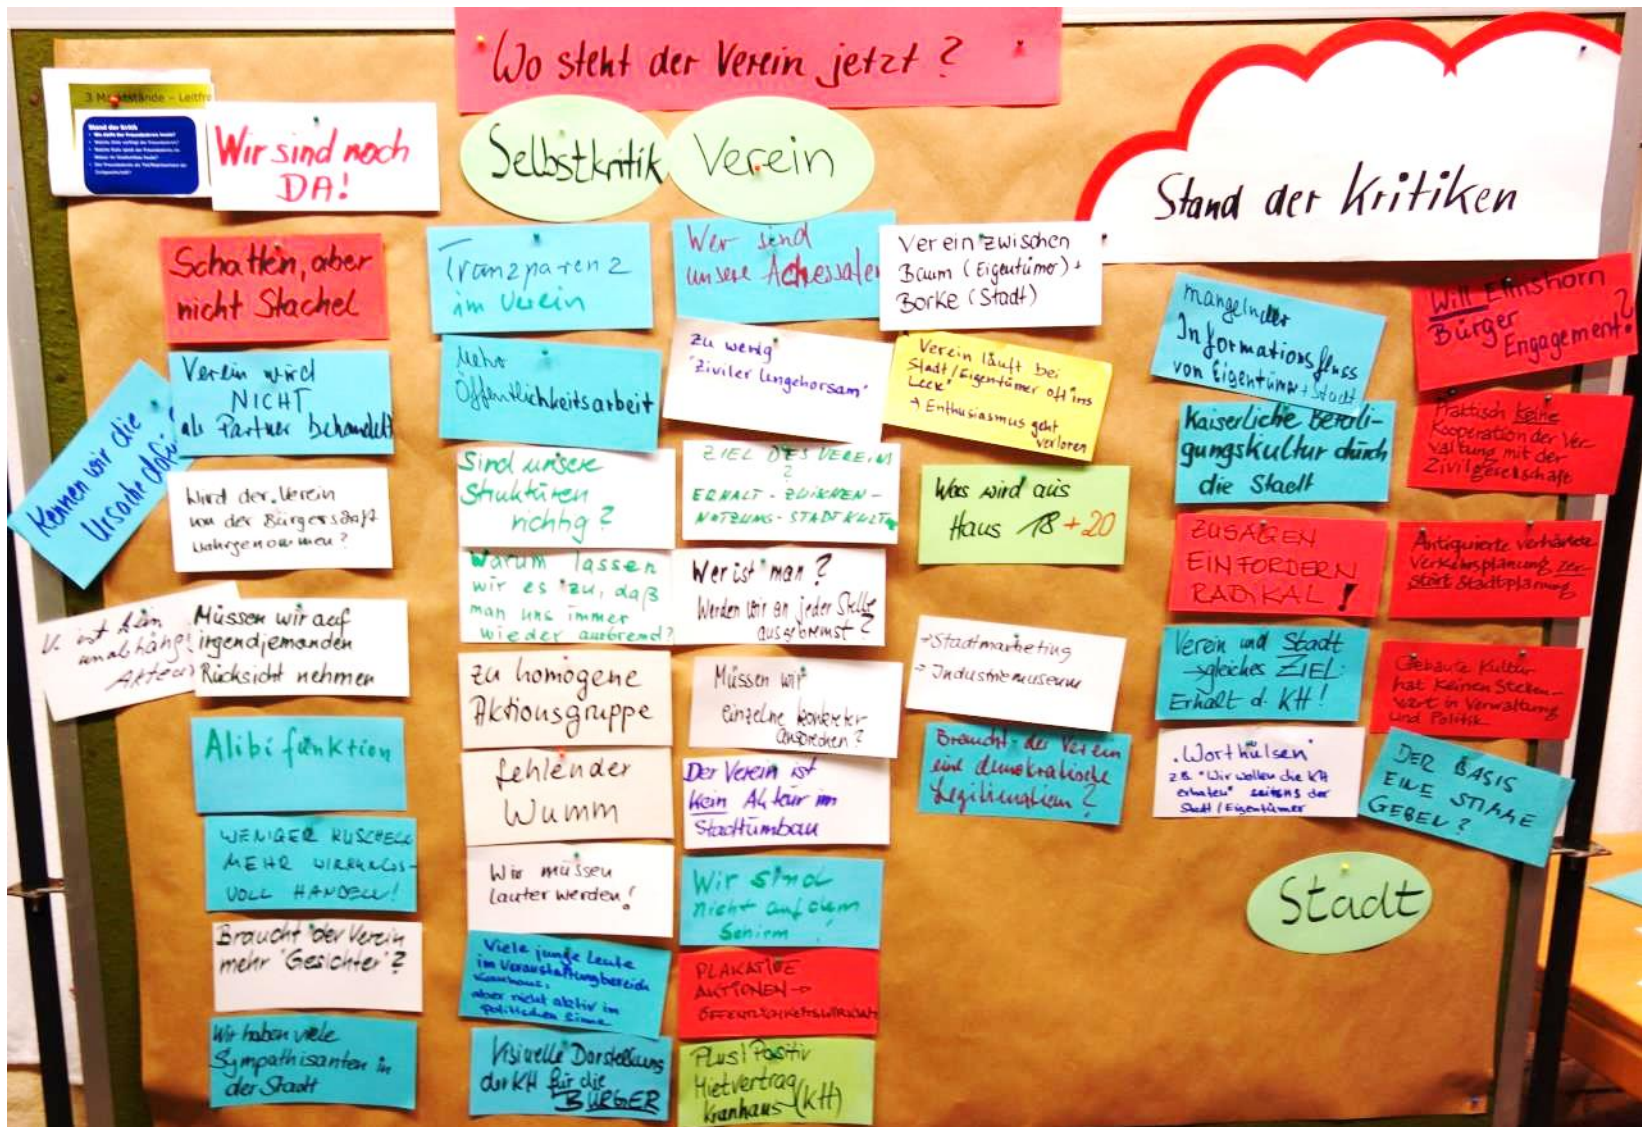 Wo steht der Verein jetzt?
3 Marktstände - Leitfr
Stand der Kritik
Wir sind noch
DA!
Selbstkritik
Verein
Stand der Kritiken
Schatten, aber
nicht Stachel
Verein wird
NICHT
als Partner behandelt
Kennen wir die
Ursache dafür
Wird der Verein
von der Bürgerschaft
wahrgenommen?
V. ist kein
unabhäng.
Akteur
Müssen wir auf
irgendjemanden
Rücksicht nehmen
Alibifunktion
WENIGER KUSCHELN
MEHR WIRKUNGS-
VOLL HANDELN!
Braucht der Verein
mehr "Gesichter"?
Wir haben viele
Sympathisanten in
der Stadt
Tranzparenz
im Verein
Mehr
Öffentlichkeitsarbeit
Sind unsere
Strukturen
richtig?
Warum lassen
wir es zu, daß
man uns immer
wieder ausbremst?
zu homogene
Aktionsgruppe
fehlender
Wumm
Wir müssen
lauter werden!
Viele junge Leute
im Veranstaltungbereich
Kranhaus,
aber nicht aktiv im
politischen Sinne
Visuelle Darstellung
der KH für die
BÜRGER
Wer sind
unsere Adressaten
zu wenig
"Ziviler Ungehorsam"
ZIEL DES VEREIN
?
ERHALT - ZWISCHEN-
NUTZUNG - STADTKULTUR
Wer ist "man"?
Werden wir an jeder Stelle
ausgebremst?
Müssen wir
einzelne konkreter
ansprechen?
Der Verein ist
kein Akteur im
Stadtumbau
Wir sind
nicht auf dem
Schirm!
PLAKATIVE
AKTIONEN →
ÖFFENTLICHKEITSWIRKSAM
Plus/Positiv
Mietvertrag
Kranhaus (KH)
Verein zwischen
Baum (Eigentümer) +
Borke (Stadt)
Verein läuft bei
Stadt/Eigentümer oft "ins
Leck"
→ Enthusiasmus geht
verloren
Was wird aus
Haus 18 + 20
→ Stadtmarketing
→ Industriemuseum
Braucht der Verein
eine demokratische
Legitimation?
mangelnder
Informationsfluss
von Eigentümer + Stadt
Kaiserliche Beteili-
gungskultur durch
die Stadt
ZUSAGEN
EINFORDERN
RADIKAL!
Verein und Stadt
→ gleiches ZIEL:
Erhalt d. KH!
"Worthülsen"
z.B. "Wir wollen die KH
erhalten" seitens der
Stadt/Eigentümer
Will Elmshorn
Bürger
Engagement?
Praktisch keine
Kooperation der Ver-
waltung mit der
Zivilgesellschaft
Antiquierte verhärtete
Verkehrsplanung zer-
stört Stadtplanung
Gebaute Kultur
hat keinen Stellen-
wert in Verwaltung
und Politik
DER BASIS
EINE STIMME
GEBEN?
Stadt